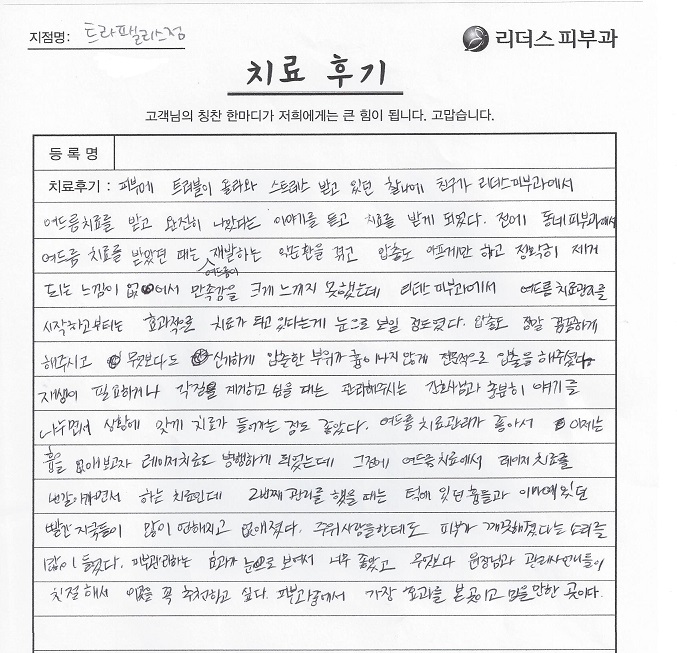 지점명: 트라팰리스점
리더스 피부과
치료 후기
고객님의 칭찬 한마디가 저희에게는 큰 힘이 됩니다. 고맙습니다.
등록명
치료후기 : 피부에 트러블이 올라와 스트레스 받고 있던 찰나에 친구가 리더스피부과에서
여드름치료를 받고 완전히 나았다는 이야기를 듣고 치료를 받게 되었다. 전에 동네 피부과에서
여드름 치료를 받았던 때는 여드름이 재발하는 악순환을 겪고 압출도 아프게만 하고 정확히 제거
되는 느낌이 없어서 만족감을 크게 느끼지 못했는데 리더스 피부과에서 여드름 치료관리를
시작하고부터는 효과적으로 치료가 되고 있다는게 눈으로 보일 정도였다. 압출도 정말 꼼꼼하게
해주시고 무엇보다도 신기하게 압출한 부위가 흉이 나지 않게 전문적으로 압출을 해주셨다.
재생이 필요하거나 각질을 제거하고 싶을 때는 관리해주시는 간호사님과 충분히 얘기를
나누면서 상황에 맞게 치료가 들어가는 점도 좋았다. 여드름 치료관리가 좋아서 이제는
흉을 없애보고자 레이저치료도 병행하게 되었는데 그전에 여드름치료에서 레이저 치료를
번갈아하면서 하는 치료인데 2번째 관리를 했을 때는 턱에 있던 흉들과 이마에 있던
빨간 자국들이 많이 연해지고 없애졌다. 주위사람들한테도 피부가 깨끗해졌다는 소리를
많이 들었다. 피부관리하는 효과가 눈으로 보여서 너무 좋았고 무엇보다 원장님과 관리사언니들이
친절해서 꼭 추천하고 싶다. 피부과중에서 가장 효과를 본 곳이고 믿을 만한 곳이다.